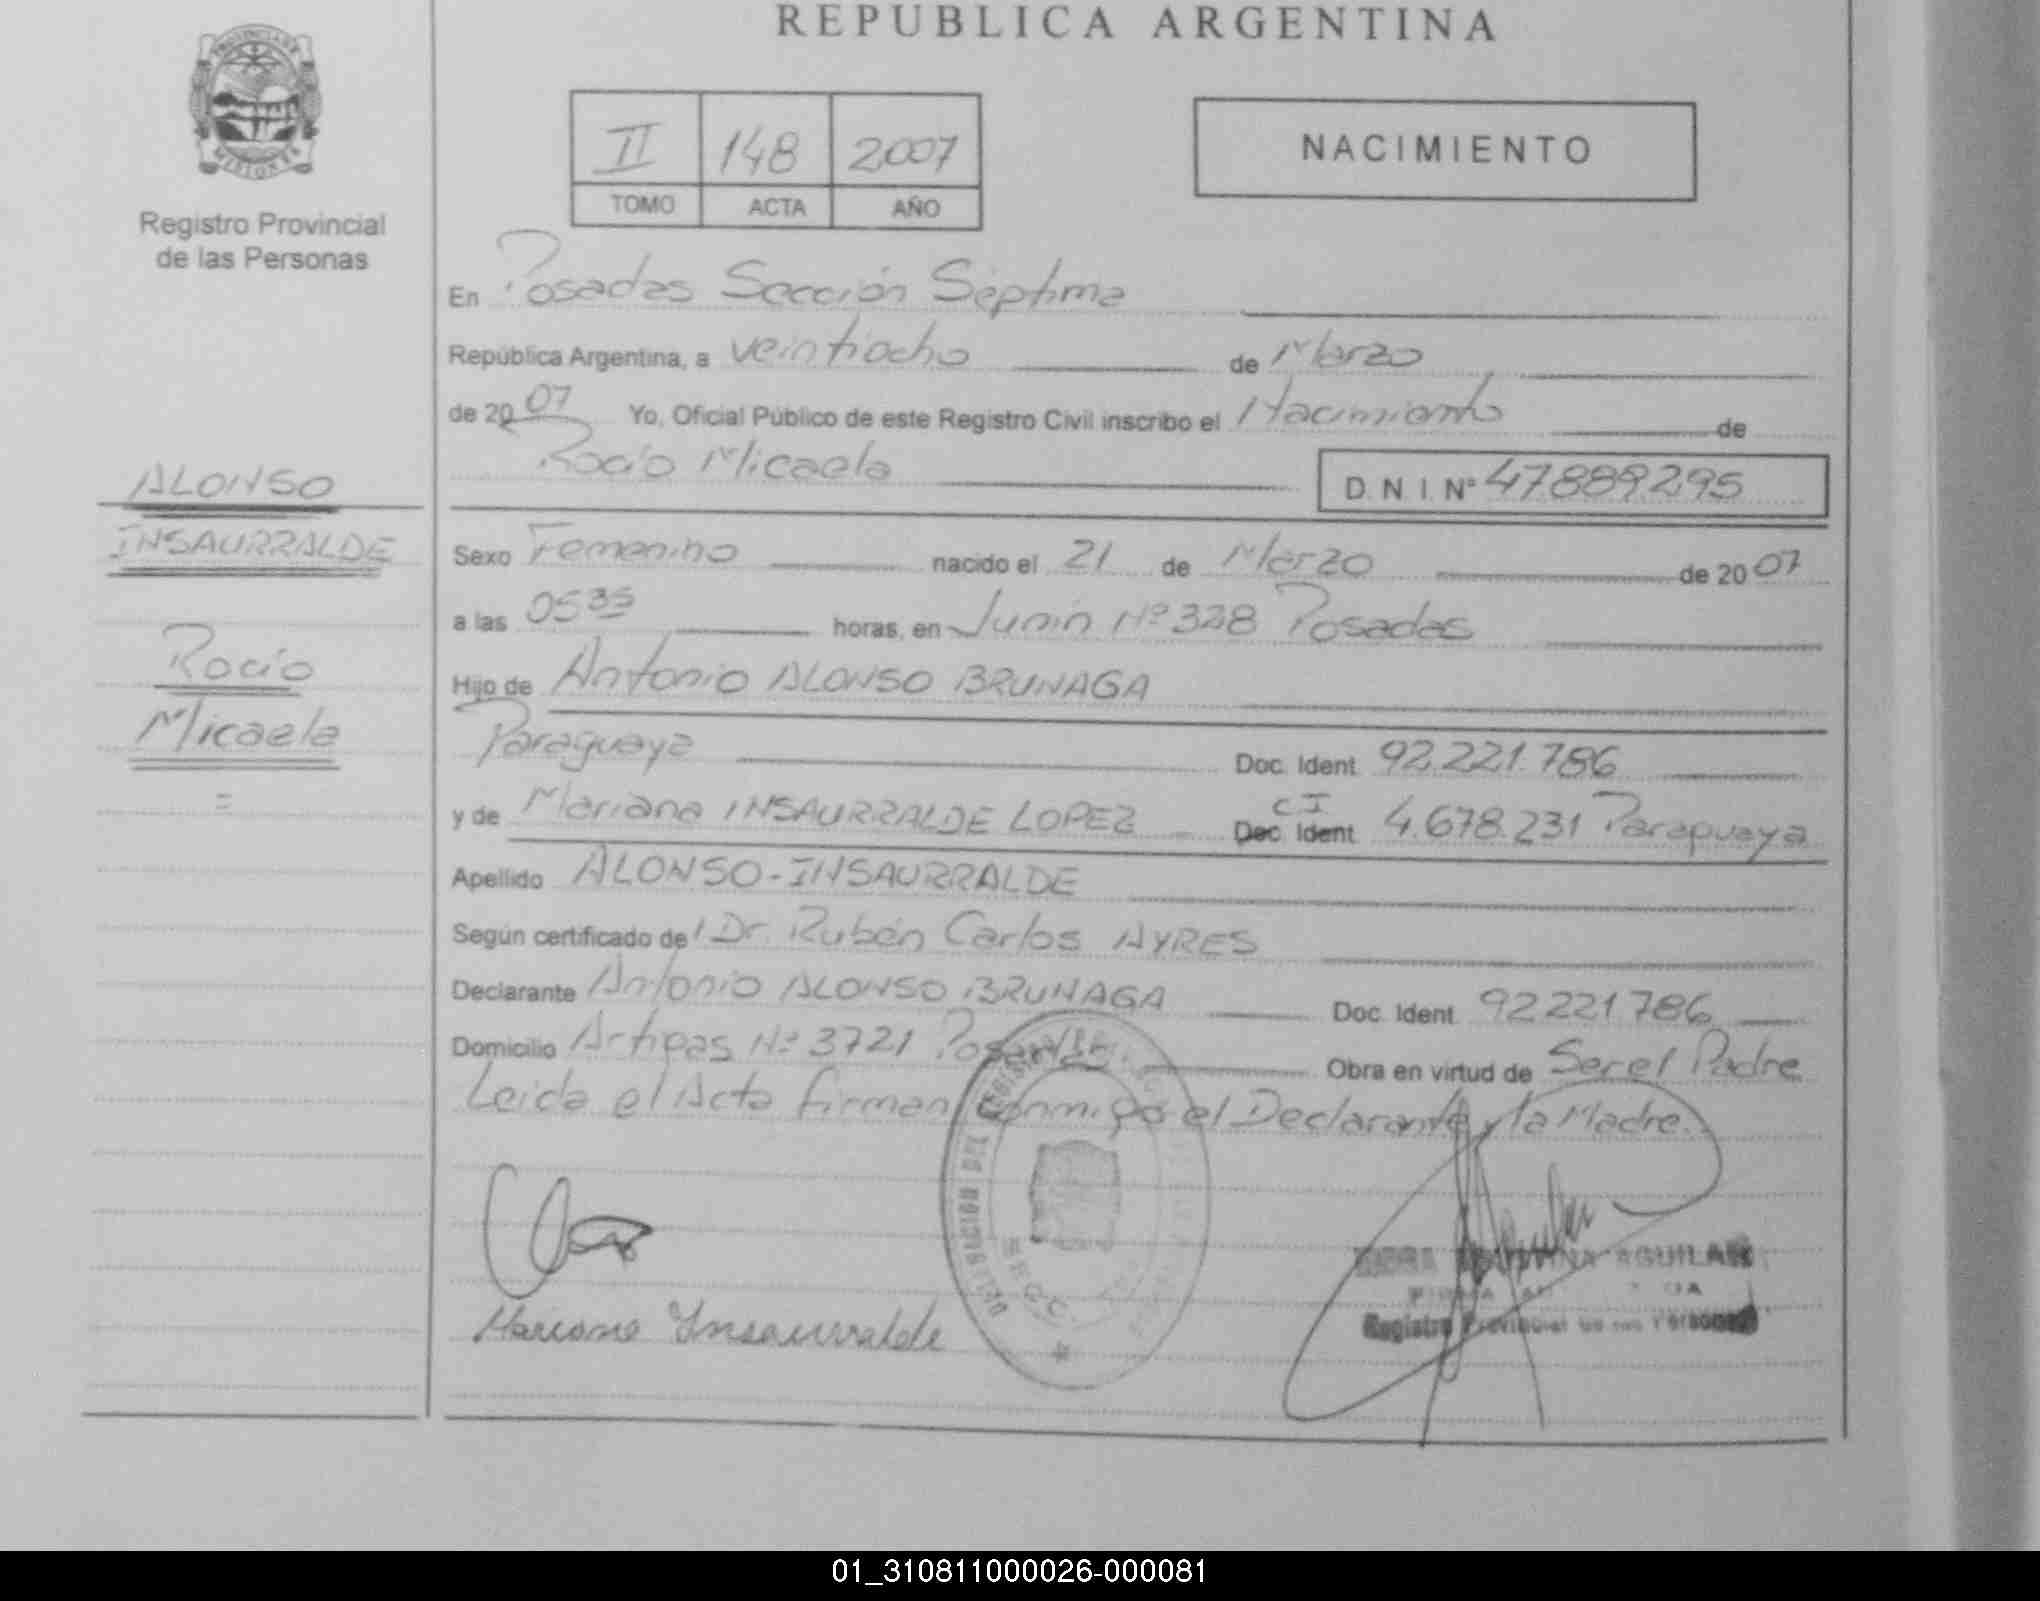 REPUBLICA ARGENTINA
PROVINCIA DE
MISIONES
Registro Provincial
de las Personas
II 148 2007
TOMO ACTA AÑO
NACIMIENTO
En Posadas Sección Séptima
República Argentina, a veintiocho de Marzo
de 2007 Yo, Oficial Público de este Registro Civil inscribo el Nacimiento de
Rocio Micaela D.N.I. Nº 47889295
ALONSO
INSAURRALDE
Rocio
Micaela
=
Sexo Femenino nacido el 21 de Marzo de 2007
a las 05 35 horas, en Junín Nº 328 Posadas
Hijo de Antonio ALONSO BRUNAGA
Paraguaya Doc. Ident. 92.221.786
y de Mariana INSAURRALDE LOPEZ CI Doc. Ident. 4.678.231 Paraguaya
Apellido ALONSO-INSAURRALDE
Según certificado del Dr. Rubén Carlos AYRES
Declarante Antonio ALONSO BRUNAGA Doc. Ident. 92221786
Domicilio Artigas Nº 3721 Posadas Obra en virtud de Ser el Padre
Leida el Acta firman conmigo el Declarante y la Madre.
DELEGACION DEL REGISTRO
Mariana Insaurralde
AGUILAR
Registro Provincial de las Personas
01_310811000026-000081